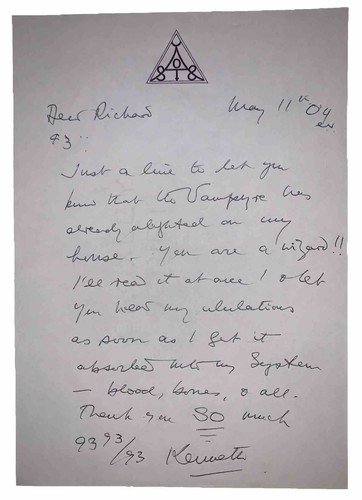 May 11th '04 ev
Dear Richard
93 ::
Just a line to let you
know that the Vampyre has
already alighted on my
house. You are a wizard!!
I'll read it at once & let
you hear my ululations
as soon as I get it
absorbed into my System
— blood, bones, & all.
Thank you SO much
93 93/93 Kenneth